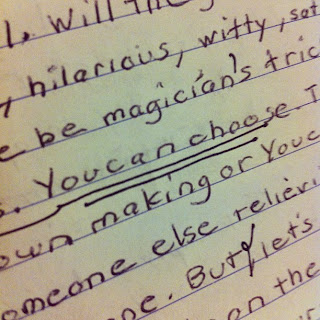 1. Will the
, hilarious, witty, sat
e be magicián's tric
s. You can choose. I
own making or You c
omeone else relievi
pe. But let's
on the